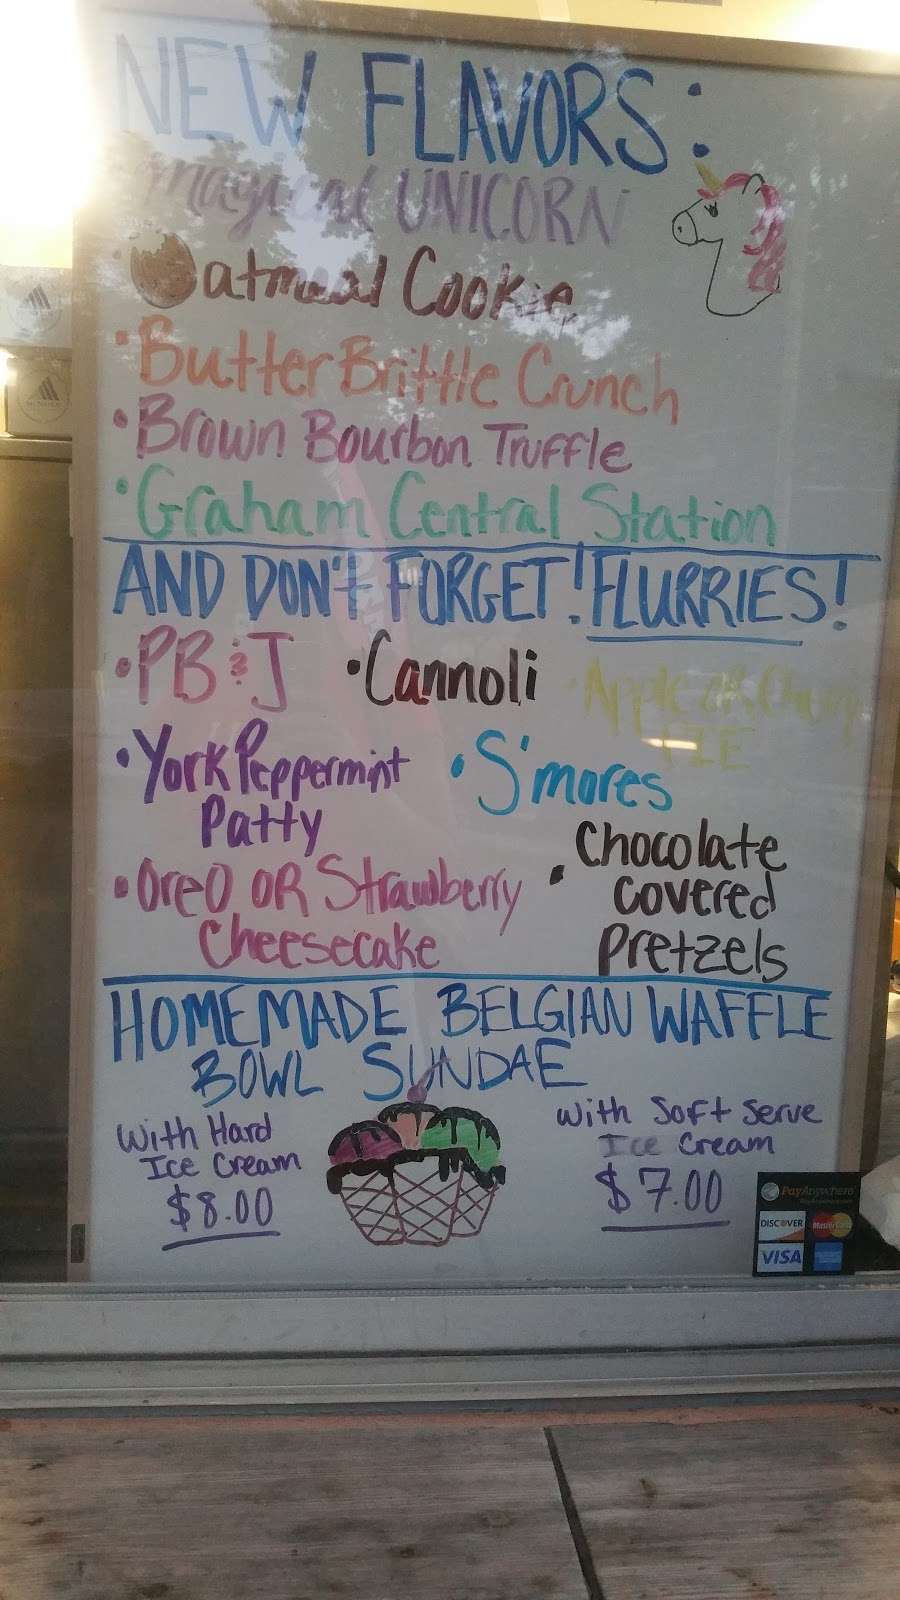 NEW FLAVORS:
magical UNICORN
• Oatmeal Cookie
• Butter Brittle Crunch
• Brown Bourbon Truffle
• Graham Central Station
AND DON'T FORGET! FLURRIES!
• PB & J • Cannoli • Apple or Cherry
PIE
• York Peppermint
Patty
• S'mores
• Oreo OR Strawberry
Cheesecake
• Chocolate
covered
Pretzels
HOMEMADE BELGIAN WAFFLE
BOWL SUNDAE
With Hard
Ice Cream
$8.00
with Soft Serve
Ice Cream
$7.00
PayAnywhere
DISCOVER MasterCard
VISA